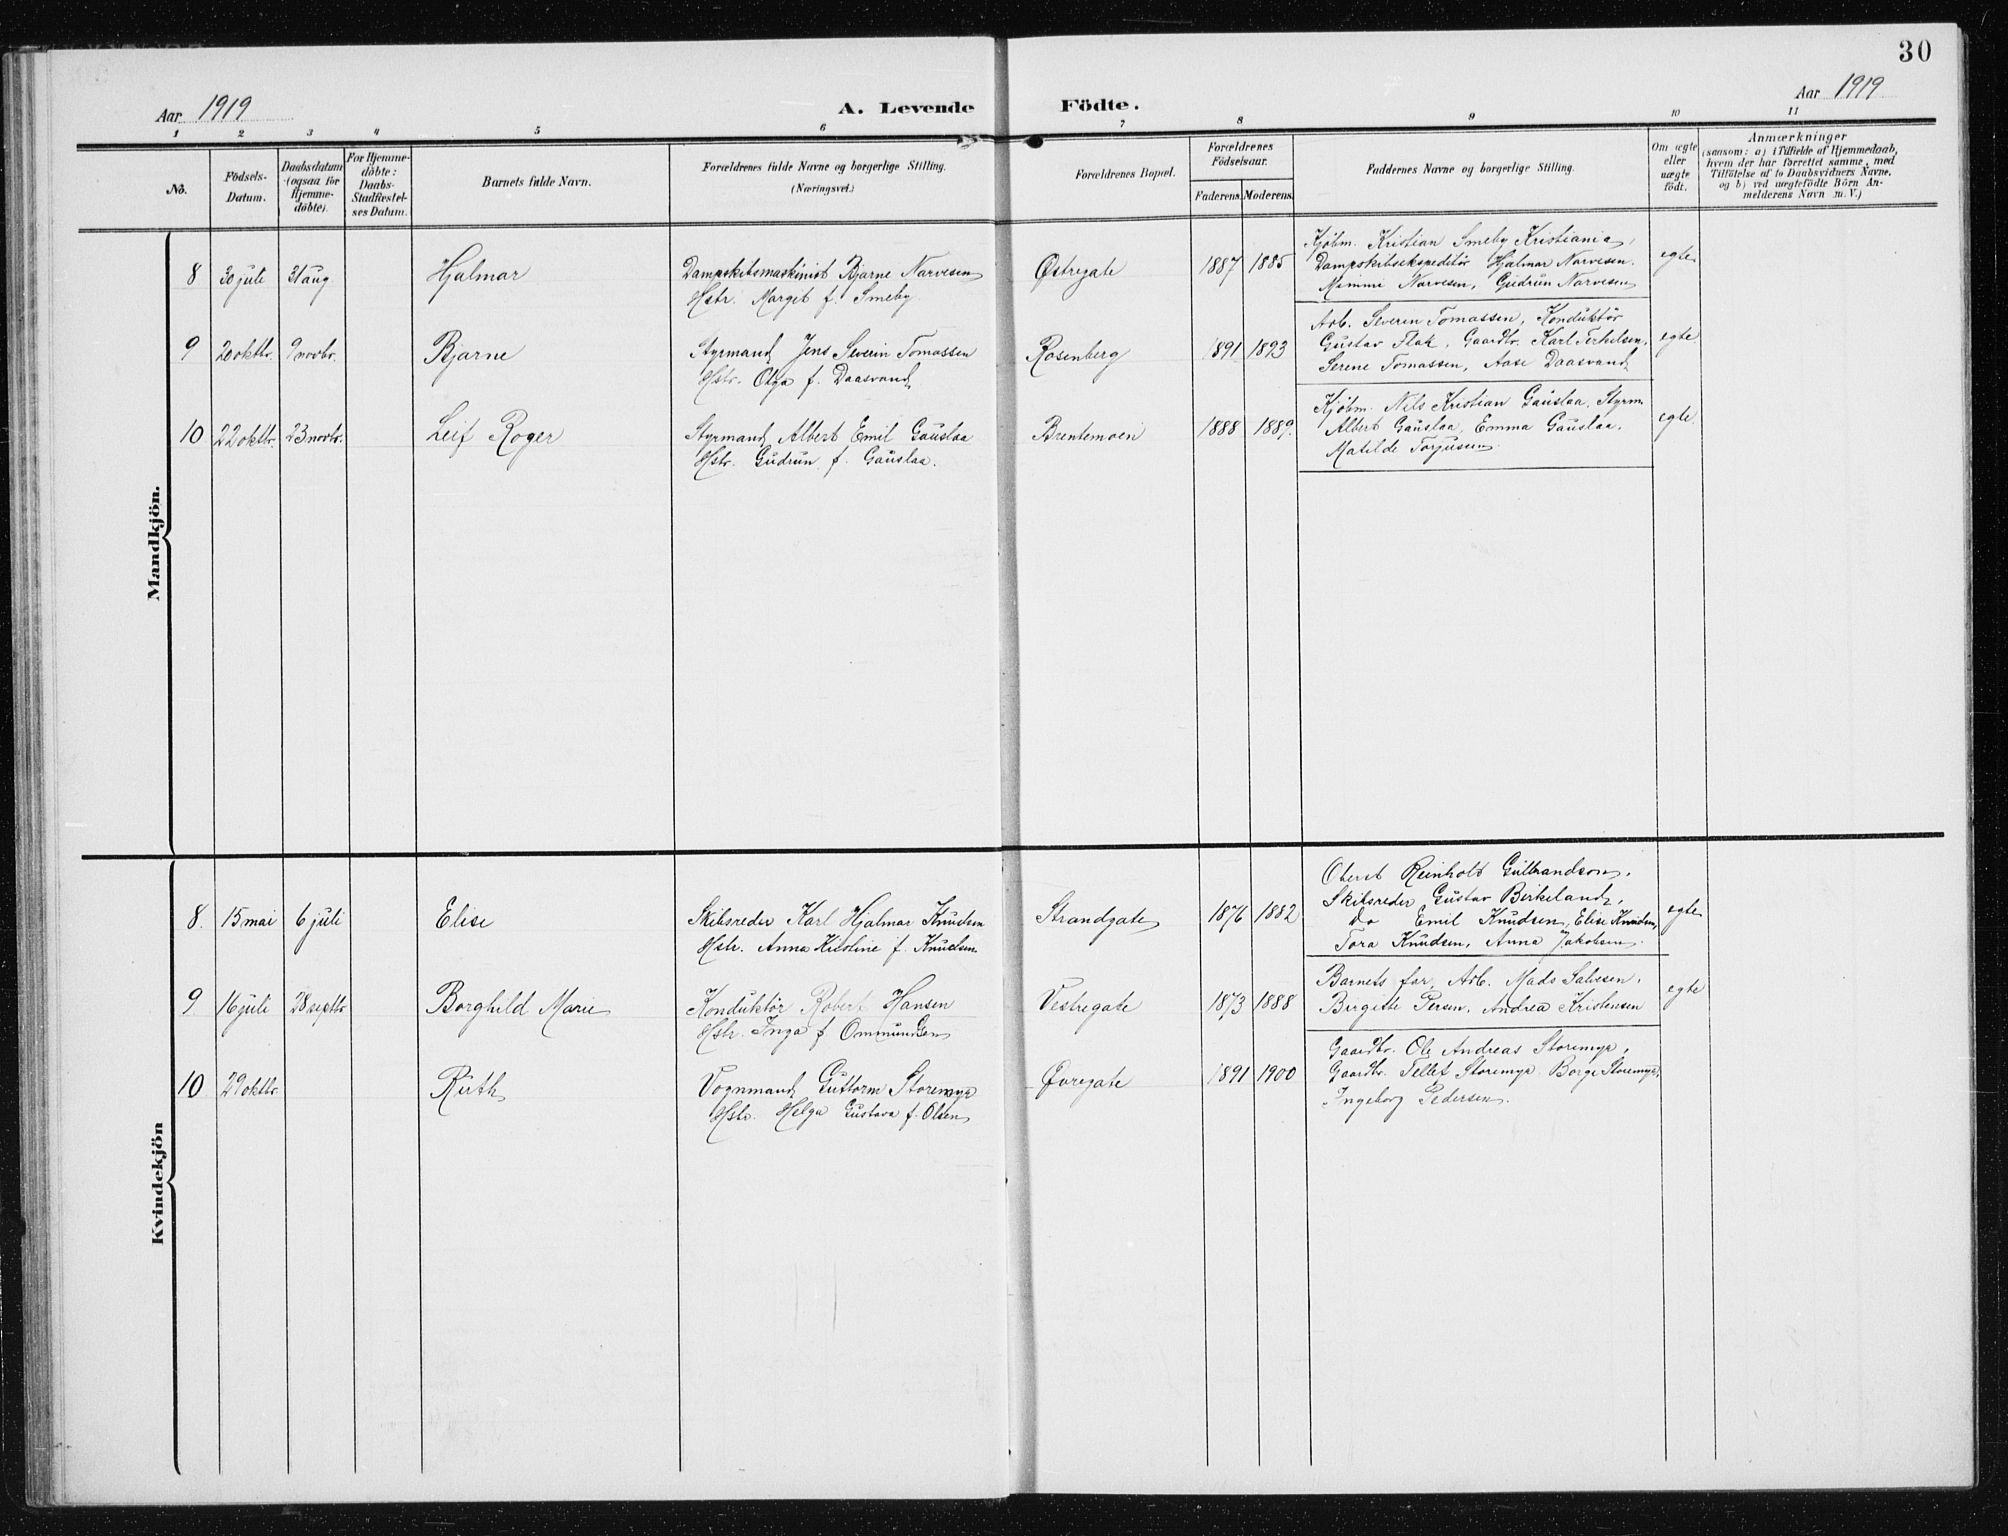 30
Aar 1919 A. Levende Födte. Aar 1919
1 2 3 4 5 6 7 8 9 10 11
No.
Födsels-
Datum.
Daabsdatum
(ogsaa for
Hjemme-
döbte).
For Hjemme-
döbte:
Daabs-
Stadfæstel-
ses Datum.
Barnets fulde Navn.
Forældrenes fulde Navne og borgerlige Stilling.
(Næringsvei.)
Forældrenes Bopæl.
Forældrenes
Födselsaar.
Faderens. Moderens.
Faddernes Navne og borgerlige Stilling.
Om ægte
eller
uægte
födt.
Anmærkninger
(saasom: a) i Tilfælde af Hjemmedaab,
hvem der har forrettet samme, med
Tilföielse af to Daabsvidners Navne,
og b) ved uægtefödte Börn An-
melderens Navn m. V.)
Mandkjön.
8 30 juli 31 aug Hjalmar
Dampskibsmaskinist Bjarne Narvesen
Hstr. Margit f. Smeby.
Østregate 1887 1885
Kjöbm. Kristian Smeby Kristiania,
Dampskibsekspeditör Hjalmar Narvesen.
Mimmi Narvesen, Gudrun Narvesen
egte
9 20 oktbr. 9 novbr. Bjarne
Styrmand Jens Severin Tomassen
Hstr. Olga f. Daasvand
Rosenberg 1891 1893
Arb. Severin Tomassen, Konduktör
Gustav Flak, Gaardbr. Karl Terkelsen,
Serene Tomassen, Aase Daasvand
egte
10 22 oktbr. 23 novbr. Leif Roger
Styrmand Albert Emil Gauslaa
Hstr. Gudrun f. Gauslaa.
Brentemoen 1888 1889.
Kjöbm. Nils Kristian Gauslaa, Styrm
Albert Gauslaa, Emma Gauslaa.
Matilde Torjusen.
egte
Kvindekjön
8. 15 mai 6 juli Elise
Skibsreder Karl Hjalmar Knudsen
Hstr. Anna Kirstine f. Knudsen
Strandgate 1876 1882
Oberst Reinholt Gulbrandson,
Skibsreder Gustav Birkeland,
do Emil Knudsen, Elise Knudsen,
Tora Knudsen, Anna Jakobsen.
egte
9 16 juli 28 septbr Borghild Marie
Konduktör Robert Hansen
Hstr. Inga f. Ommundsen
Vestregate 1873 1888
Barnets far, Arb. Mads Salvesen,
Birgitte Persen, Andrea Kristensen
egte
10 29 oktbr. Ruth
Vognmand Guttorm Storemyr
Hstr. Helga Gustava f. Olsen
Øvregate 1891 1900
Gaardbr. Ole Andreas Storemyr,
Gaardbr. Tellef Storemyr Borge Storemyr,
Ingeborg Pedersen.